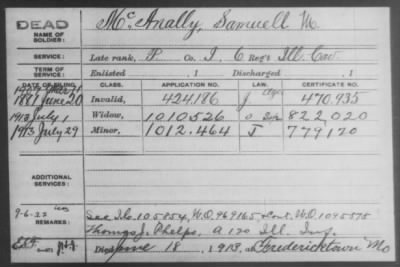 DEAD
NAME OF SOLDIER:
McAnally, Samuell M.
SERVICE:
Late rank, P. Co. I, 6 Reg't Ill. Cav.
TERM OF SERVICE:
Enlisted , 1 Discharged , 1
CLASS. APPLICATION NO. LAW. CERTIFICATE NO.
1881 June 20 Invalid, 424.186 J 470.935
1913 July 1 Widow, 1010526 822.020
1913 July 29 Minor, 1012.464 J 779170
ADDITIONAL SERVICES:
9-6-22
REMARKS:
See 105854, W.O. 969165 & Cont. W.O. 1095578
Thomas J. Phelps, A 120 Ill. Inf.
Died June 18, 1913, at Fredericktown Mo